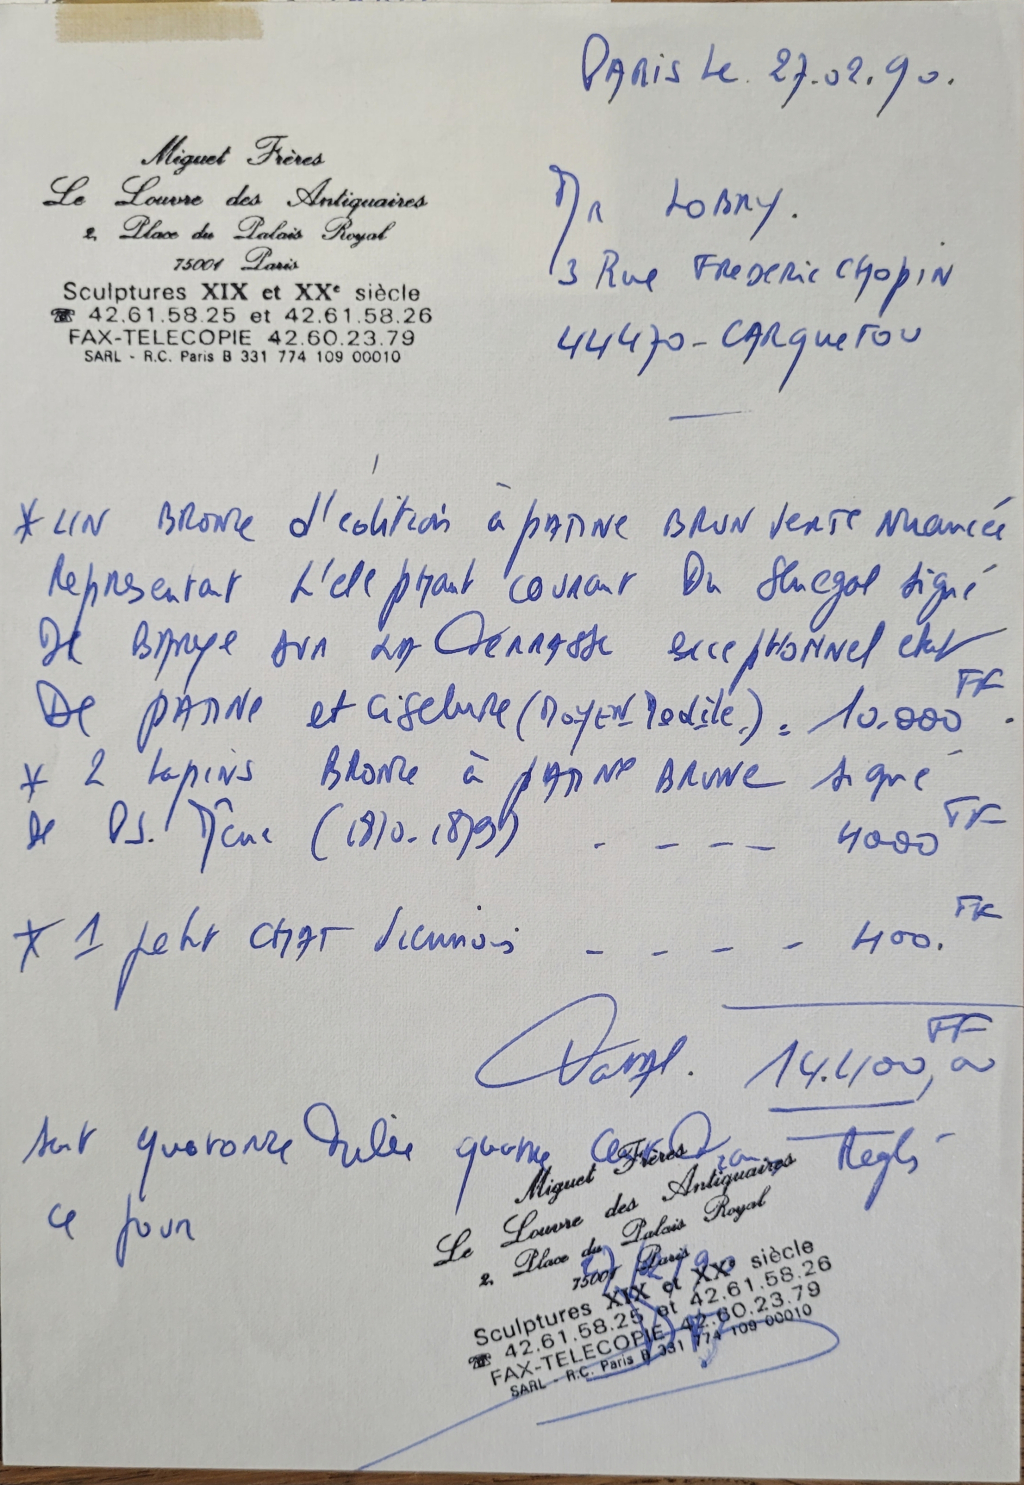 PARIS Le 27.02.90.
Miguet Frères
Le Louvre des Antiquaires
2, Place du Palais Royal
75001 Paris
Sculptures XIX et XXe siècle
☎ 42.61.58.25 et 42.61.58.26
FAX-TELECOPIE 42.60.23.79
SARL - R.C. Paris B 331 774 109 00010
Mr LOBRY.
3 Rue FREDERIC CHOPIN
44470 - CARQUEFOU
* UN BRONZE d'édition à PATINE BRUN VERTE NUANCÉE
Représentant L'elephant courant Du Sénégal signé
De BARYE SUR LA TERRASSE exceptionnel etat
De PATINE et Ciselure (MOYEN Modèle.) = 10.000 FF.
* 2 Lapins BRONZE à PATINE BRUNE signé
de P.J. Mêne (1810-1879) - - - - 4000 FF
* 1 petit CHAT Viennois - - - - 400. FF
14.400,00 FF
Soit quatorze Mille quatre Cent Réglé
ce jour
Miguet Frères
Le Louvre des Antiquaires
2, Place du Palais Royal
75001 Paris
Sculptures XIX et XXe siècle
☎ 42.61.58.25 et 42.61.58.26
FAX-TELECOPIE 42.60.23.79
SARL - R.C. Paris B 331 774 109 00010